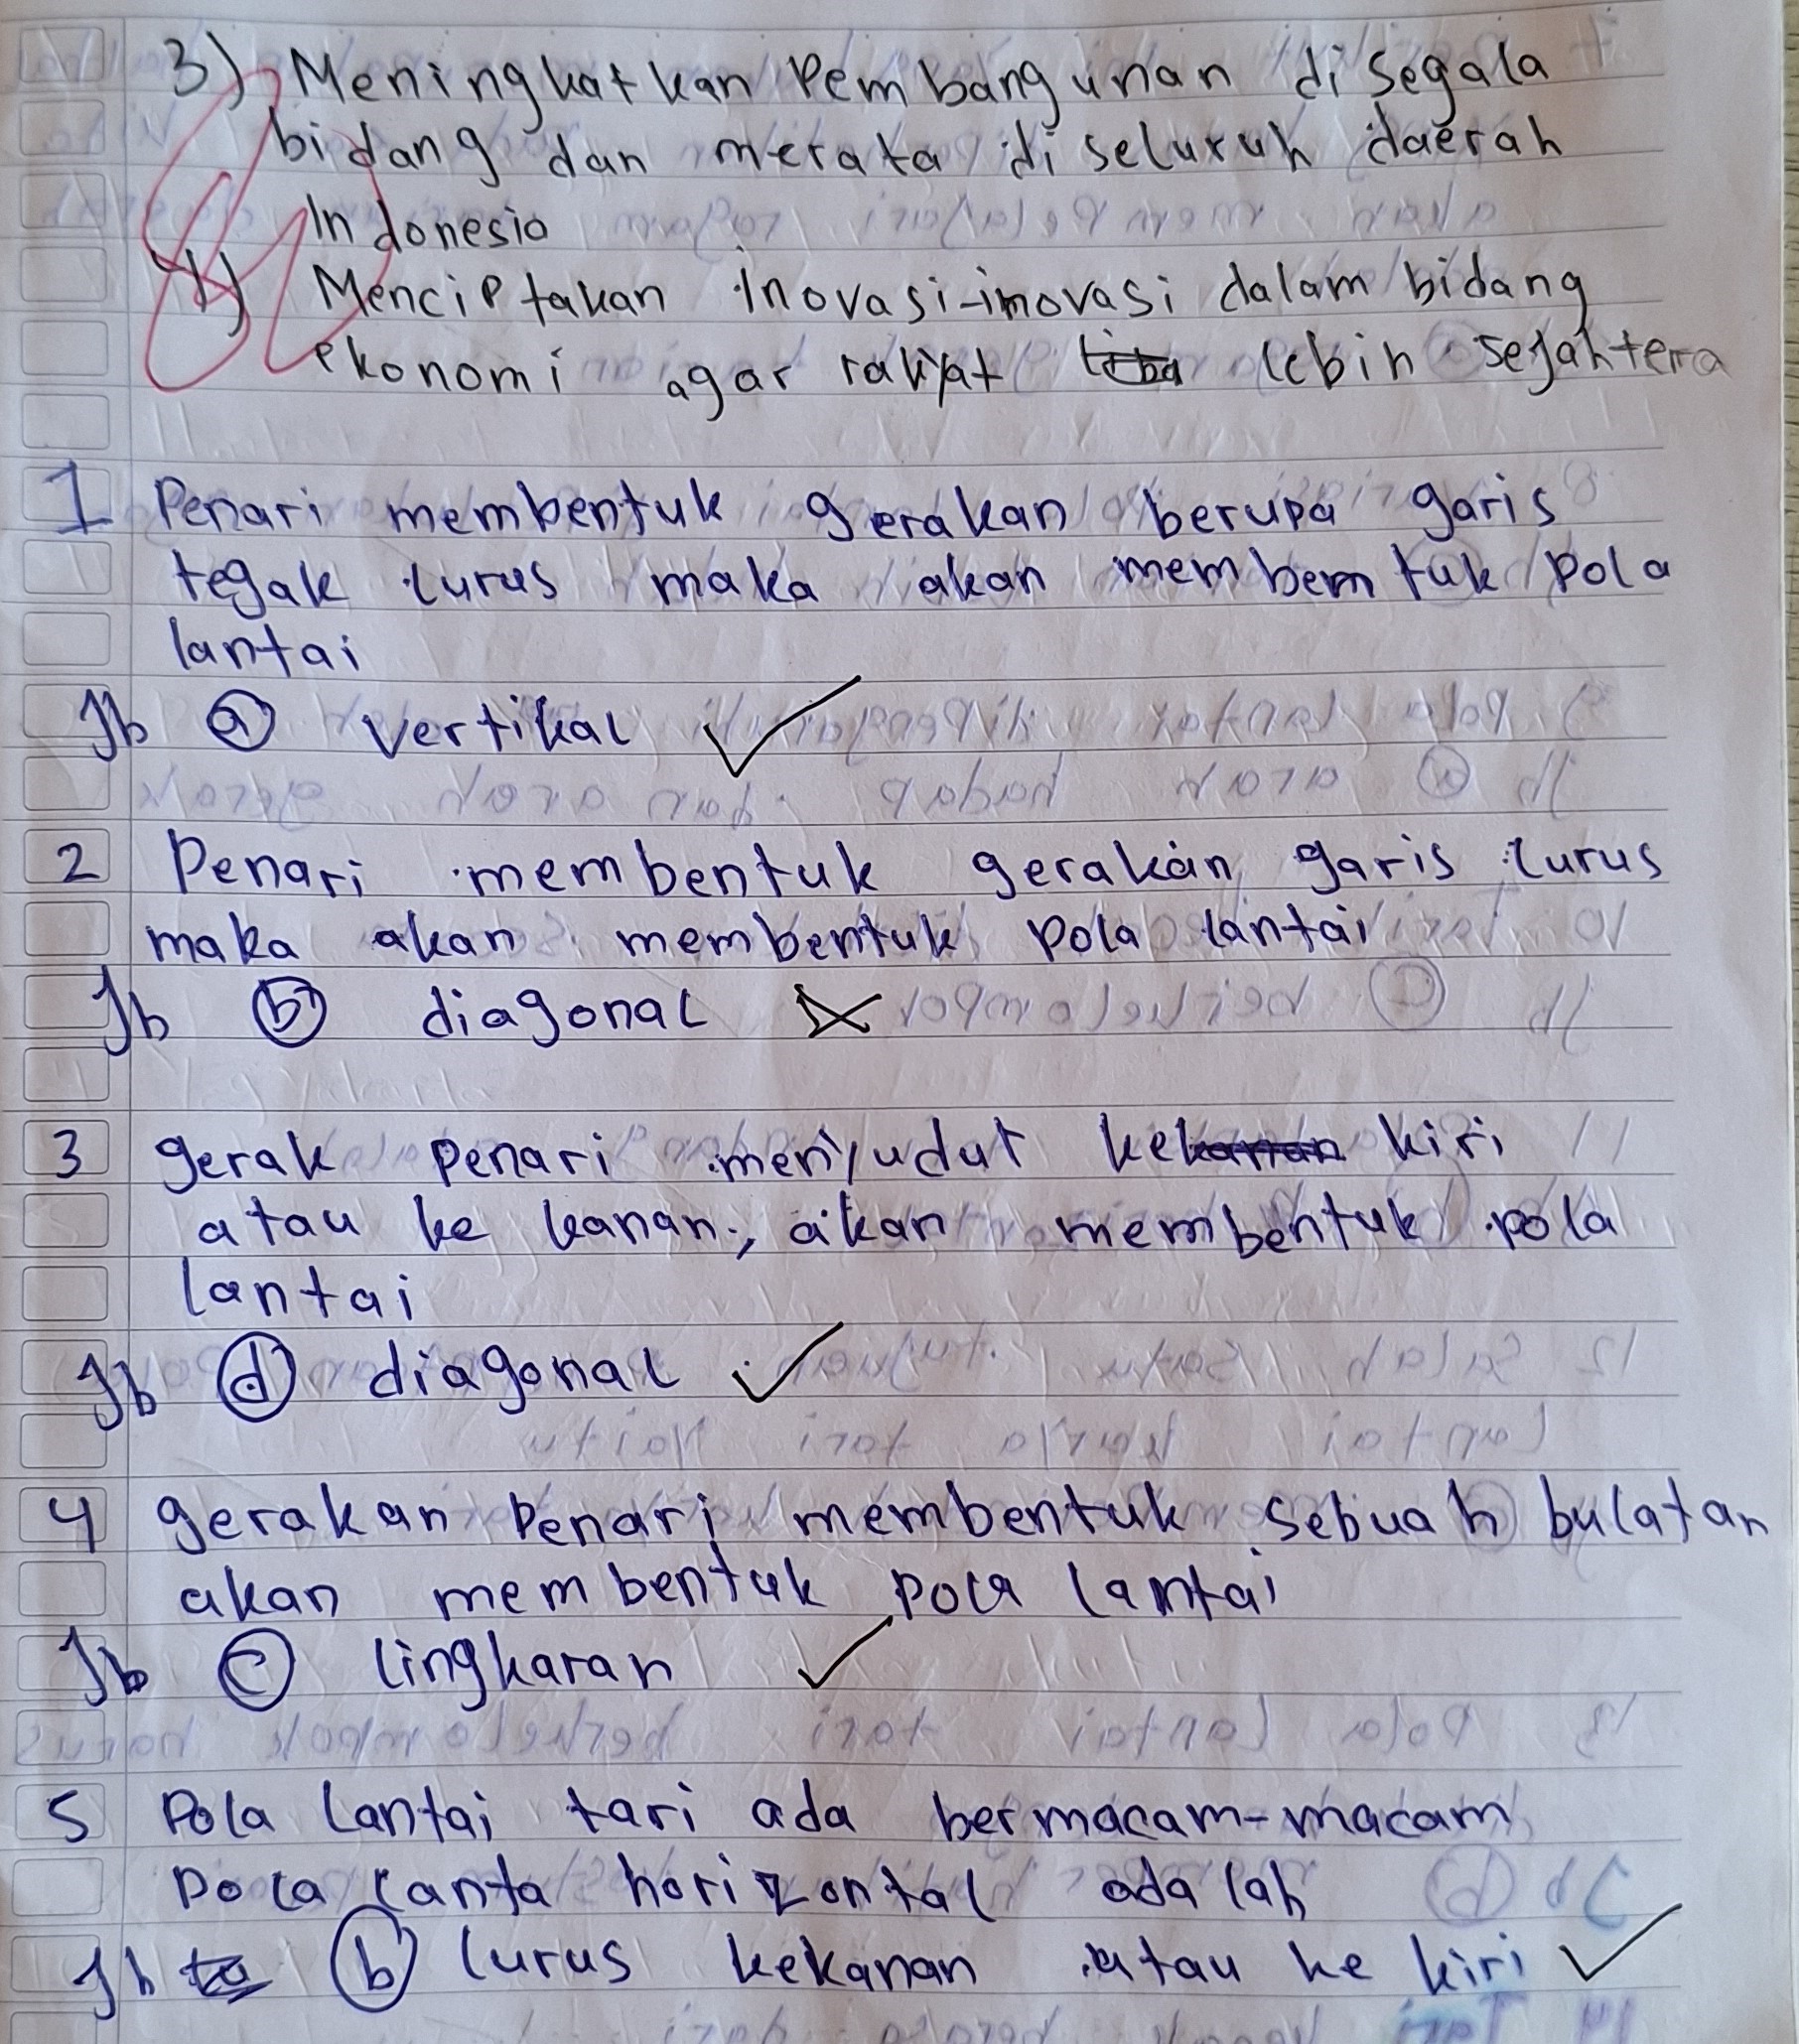 3) Meningkatkan Pembangunan di segala
bidang dan merata di seluruh daerah
Indonesia
4) Menciptakan inovasi-inovasi dalam bidang
ekonomi agar rakyat lebih sejahtera
1 Penari membentuk gerakan berupa garis
tegak lurus maka akan membemtuk pola
lantai
Jb a vertikal ✓
2 Penari membentuk gerakan garis lurus
maka akan membentuk pola lantai
Jb b diagonal ✗
3 gerak penari menyudut ke kiri
atau ke kanan, akan membentuk pola
lantai
Jb d diagonal ✓
4 gerakan Penari membentuk sebuah bulatan
akan membentuk pola lantai
Jb c lingkaran ✓
5 Pola lantai tari ada bermacam-macam
pola lanta horizontal adalah
Jb b lurus kekanan atau ke kiri ✓